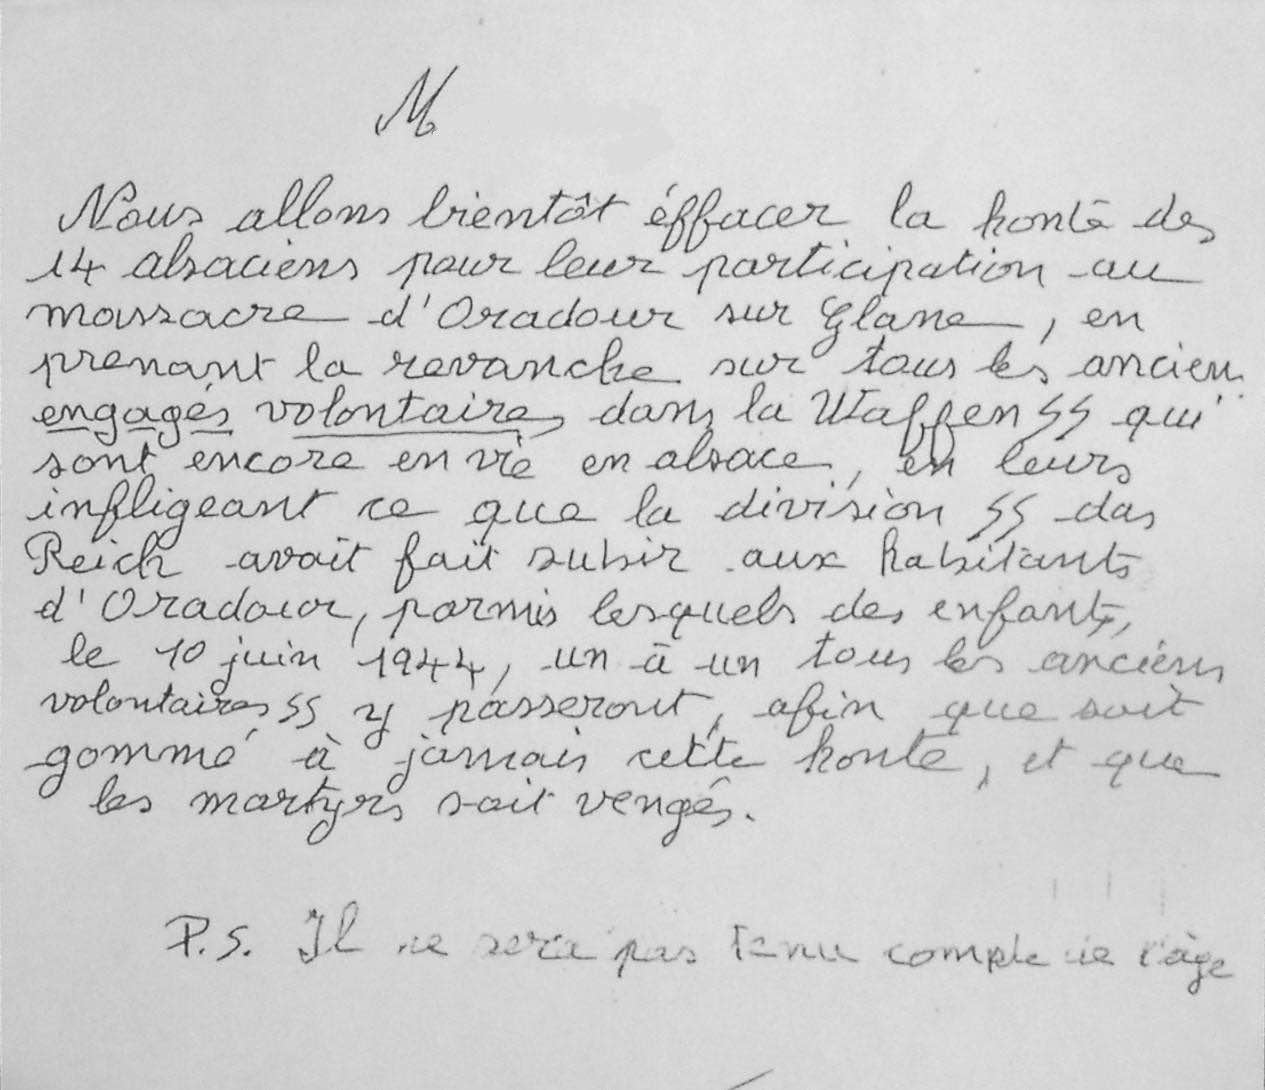 M
Nous allons bientôt éffacer la honte des
14 alsaciens pour leur participation au
massacre d'Oradour sur Glane, en
prenant la revanche sur tous les anciens
engagés volontaires dans la Waffen SS qui
sont encore en vie en alsace, en leurs
infligeant ce que la division SS das
Reich avait fait subir aux habitants
d'Oradour, parmis lesquels des enfants,
le 10 juin 1944, un à un tous les anciens
volontaires SS y passeront, afin que soit
gommé à jamais cette honte, et que
les martyrs soit vengés.
P.S. Il ne sera pas tenu compte de l'âge